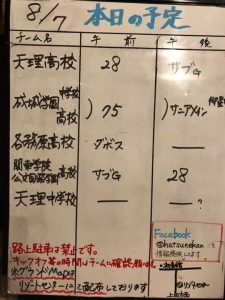 8/7 本日の予定
チーム名 午前 午後
天理高校 28 サブG
成城学園 中学校 高校 ) 75 ) サニアメイン
各務原高校 ダボス ー
関西学院 サブG 28
天理中学校 ー ー ?
路上駐車は禁止です。
キックオフ等の時間はチームに確認願います。
※グランドMapは
リゾートセンターにて配布しております
Facebook
@hatsunekan にも
情報掲載しています